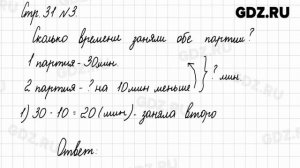 GDZ.RU
Стр. 31 № 3.
Сколько времени заняли обе партии?
1 партия - 30 мин.
2 партия - ? на 10 мин меньше } ? мин
1) 30 - 10 = 20 (мин) - заняла второ
Ответ: